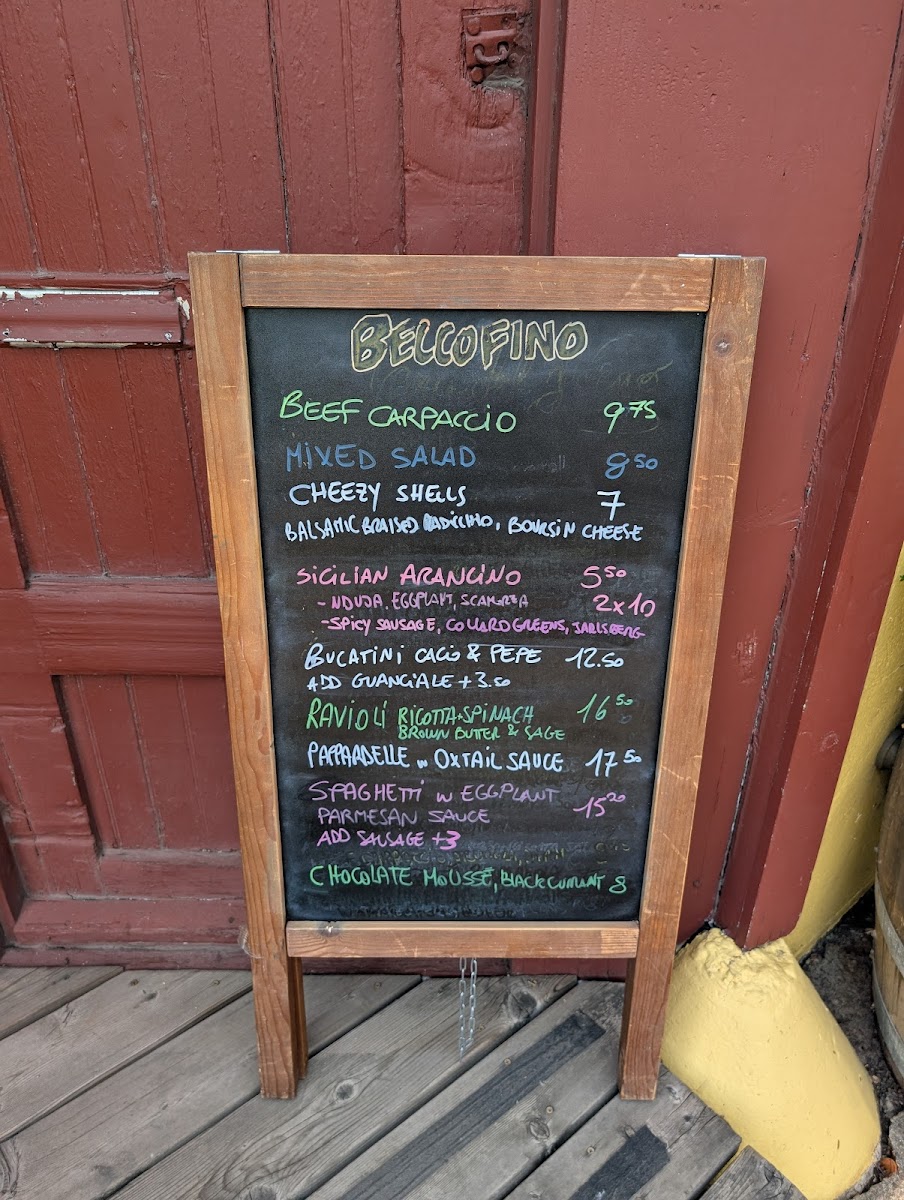 BELCOFINO
BEEF CARPACCIO 9 75
MIXED SALAD 8 50
CHEEZY SHELLS 7
BALSAMIC BRAISED RADICCHIO, BOURSIN CHEESE
SICILIAN ARANCINO 5 50
- NDUJA, EGGPLANT, SCAMORZA 2x10
- SPICY SAUSAGE, COLLARD GREENS, JARLSBERG
BUCATINI CACIO & PEPE 12.50
ADD GUANCIALE +3.50
RAVIOLI RICOTTA+SPINACH 16 50
BROWN BUTTER & SAGE
PAPPARDELLE w OXTAIL SAUCE 17 50
SPAGHETTI w EGGPLANT 15 20
PARMESAN SAUCE
ADD SAUSAGE +3
CHOCOLATE MOUSSE, BLACKCURRANT 8